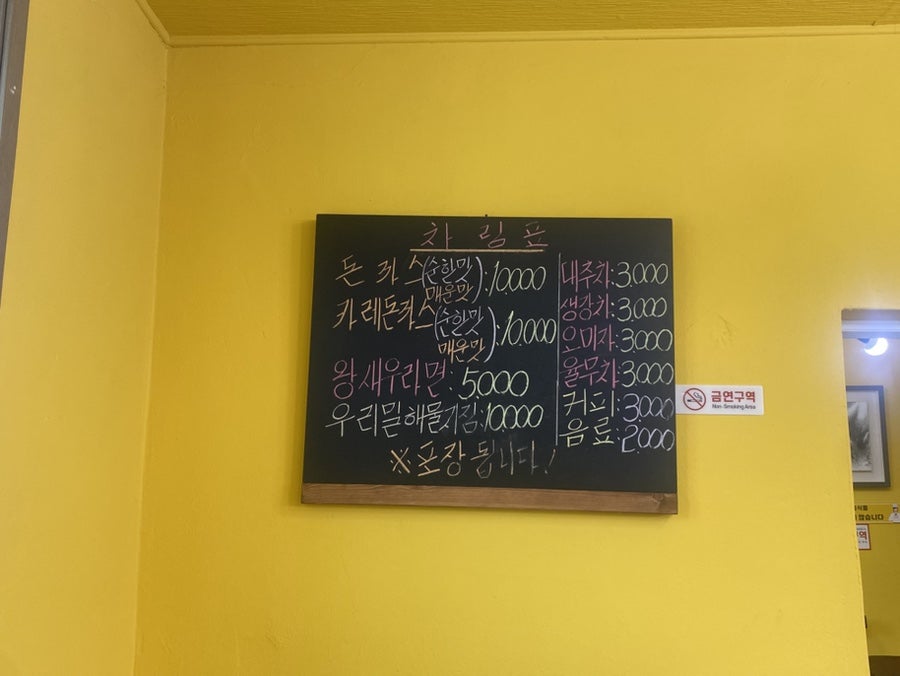 차림표
돈까스(순한맛 매운맛):10,000
카레돈까스(순한맛 매운맛):10,000
왕새우라면:5,000
우리밀해물지짐:10,000
※포장됩니다!
대추차:3,000
생강차:3,000
오미자:3,000
율무차:3,000
커피:3,000
음료:2,000
금연구역
Non-Smoking Area
많습니다